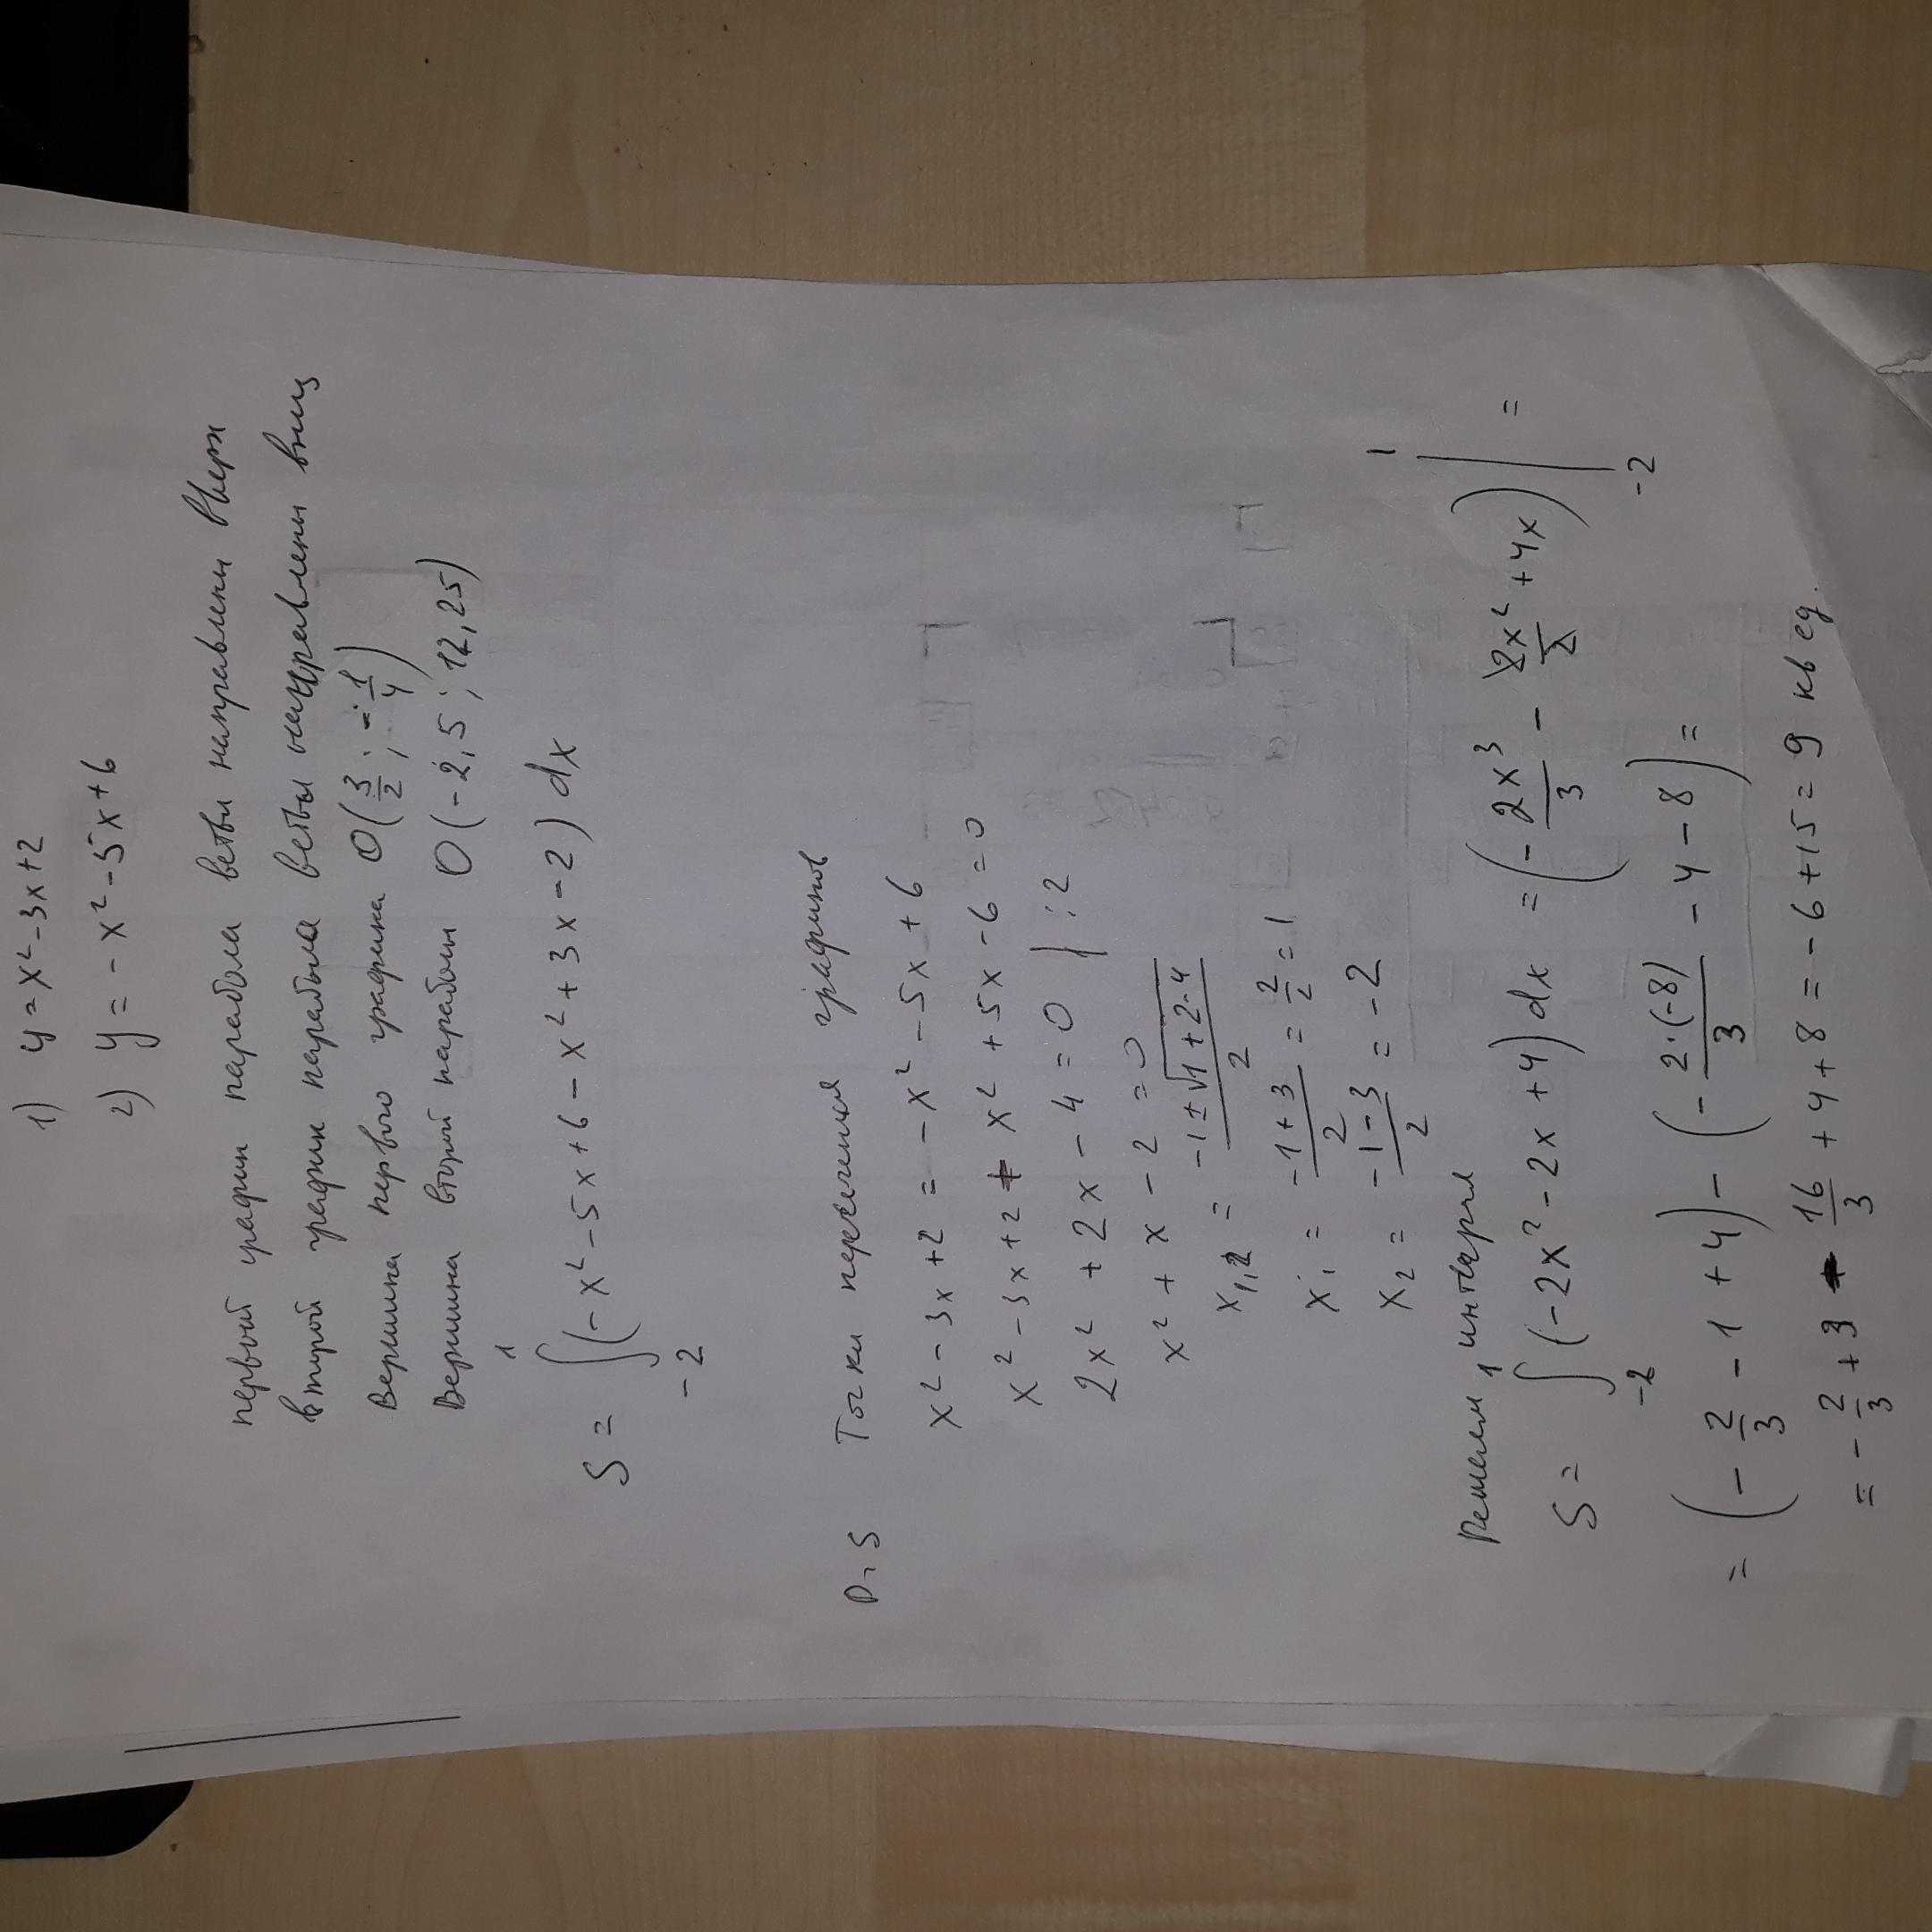 1) y = x² - 3x + 2
2) y = - x² - 5x + 6
первый график парабола ветви направлены вверх
второй график парабола ветвы направлены вниз
Вершина первого графика O(3/2; -1/4)
Вершина второй параболы O(-2,5; 12,25)
S = ∫₋₂¹ (-x² - 5x + 6 - x² + 3x - 2) dx
P.S Точки пересечения графиков
x² - 3x + 2 = - x² - 5x + 6
x² - 3x + 2 + x² + 5x - 6 = 0
2x² + 2x - 4 = 0 | : 2
x² + x - 2 = 0
x₁,₂ = (-1 ± √(1 + 2·4))/2
x₁ = (-1 + 3)/2 = 2/2 = 1
x₂ = (-1 - 3)/2 = -2
Решаем интеграл
S = ∫₋₂¹ (-2x² - 2x + 4) dx = (- 2x³/3 - 2x²/2 + 4x) |₋₂¹ =
= (- 2/3 - 1 + 4) - (- 2·(-8)/3 - 4 - 8) =
= - 2/3 + 3 - 16/3 + 4 + 8 = - 6 + 15 = 9 кв ед.